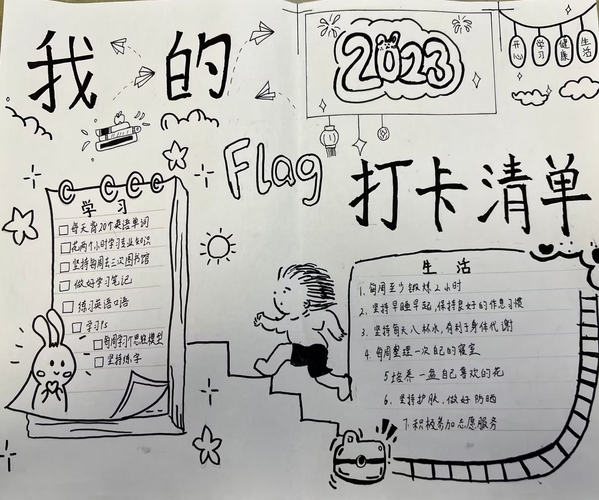 我的
2023
开心
学习
健康
生活
Flag
打卡清单
学习
每天背20个英语单词
花两个小时学习专业知识
坚持每周去三次图书馆
做好学习笔记
练习英语口语
学习Ps
每周学习1个思维模型
坚持练字
生活
1. 每周至少锻炼2小时
2. 坚持早睡早起,保持良好的作息习惯
3. 坚持每天八杯水,有利于身体代谢
4. 每周整理一次自己的寝室
5 培养一盆自己喜欢的花
6. 坚持护肤,做好防晒
7. 积极参加志愿服务